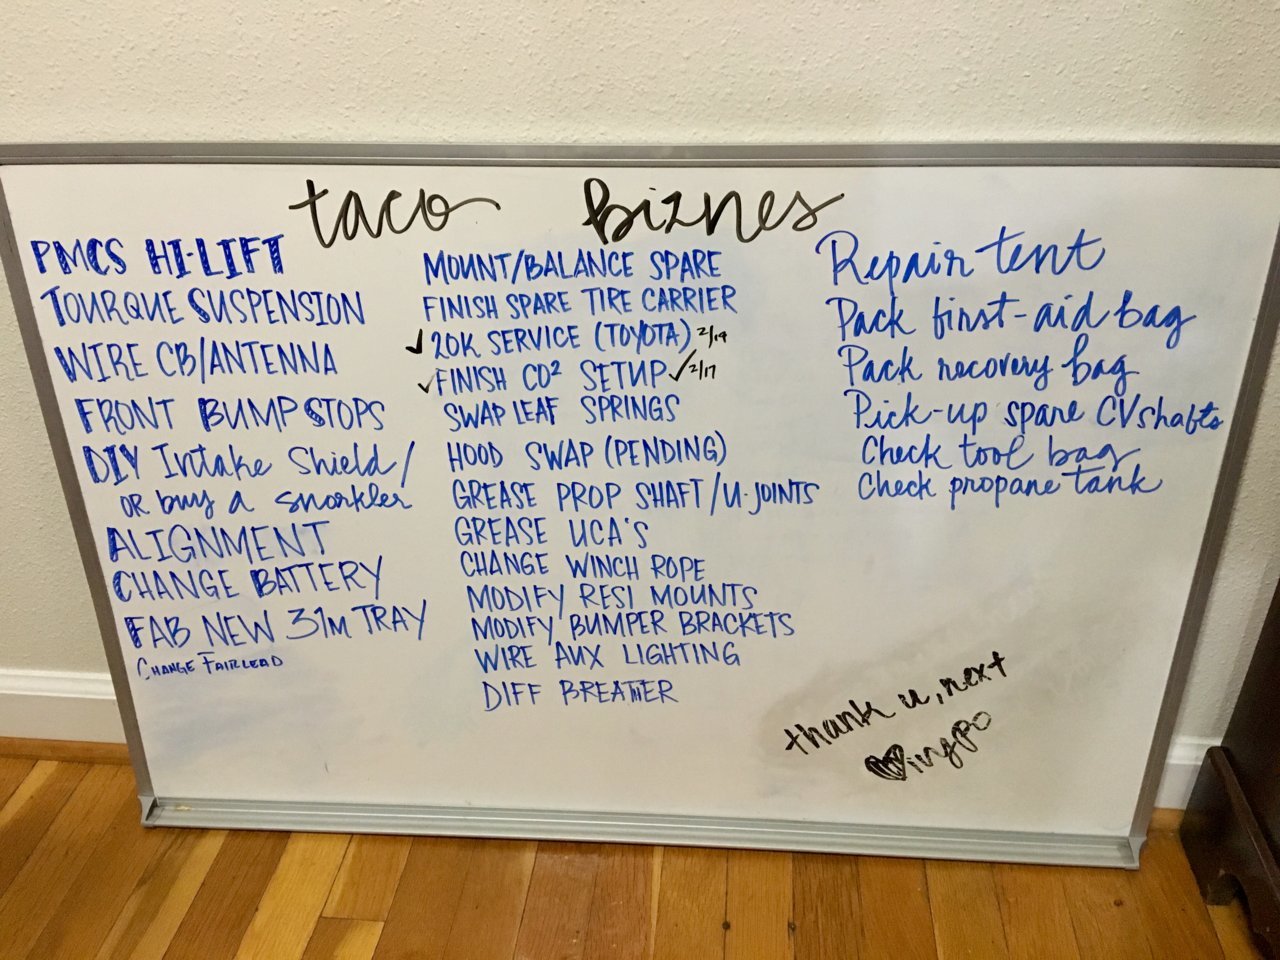 taco biznes
PMCS HI-LIFT
TOURQUE SUSPENSION
WIRE CB/ANTENNA
FRONT BUMP STOPS
DIY Intake Shield/
OR buy a snorkler
ALIGNMENT
CHANGE BATTERY
FAB NEW 31m TRAY
CHANGE FAIRLEAD
MOUNT/BALANCE SPARE
FINISH SPARE TIRE CARRIER
✓ 20K SERVICE (TOYOTA) 2/19
✓ FINISH CO² SETUP ✓ 2/17
SWAP LEAF SPRINGS
HOOD SWAP (PENDING)
GREASE PROP SHAFT/U-JOINTS
GREASE UCA'S
CHANGE WINCH ROPE
MODIFY RESI MOUNTS
MODIFY BUMPER BRACKETS
WIRE AUX LIGHTING
DIFF BREATHER
Repair tent
Pack first-aid bag
Pack recovery bag
Pick-up spare CV shafts
Check tool bag
Check propane tank
thank u, next
♥ingpo